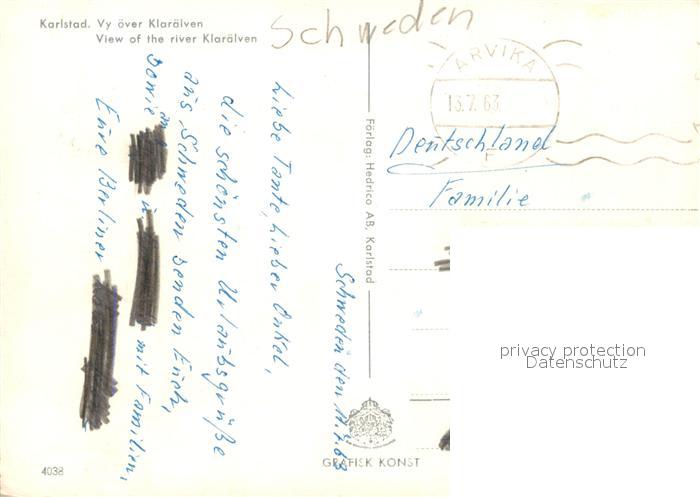 Karlstad. Vy över Klarälven
View of the river Klarälven
Schweden
ARVIKA
13.7.63
F
Schweden den 11.7.63
Liebe Tante, lieber Onkel,
die schönsten Urlaubsgrüße
aus Schweden senden Euch,
sowie
u. mit Familien,
Eure Berliner
Förlag: Hedrico AB, Karlstad
Deutschland
Familie
privacy protection
Datenschutz
GRAFISK KONST
4038